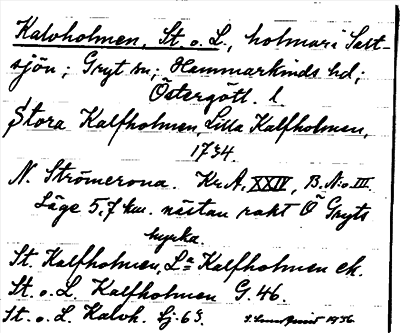 Kalvholmen, St. o. L., holmar i Salt-
sjön; Gryt sn; Hammarkinds hd;
Östergötl. l
Stora Kalfholmen, Lilla Kalfholmen,
1734
N. Strömerona. Kr.A. XXIV, B. N:o III.
Läge 5,7 km. nästan rakt Ö Gryts
kyrka.
St. Kalfholmen, La Kalfholmen ek.
St. o. L. Kalfholmen G. 46.
St. o. L. Kalvh. Sj. 63.
1936